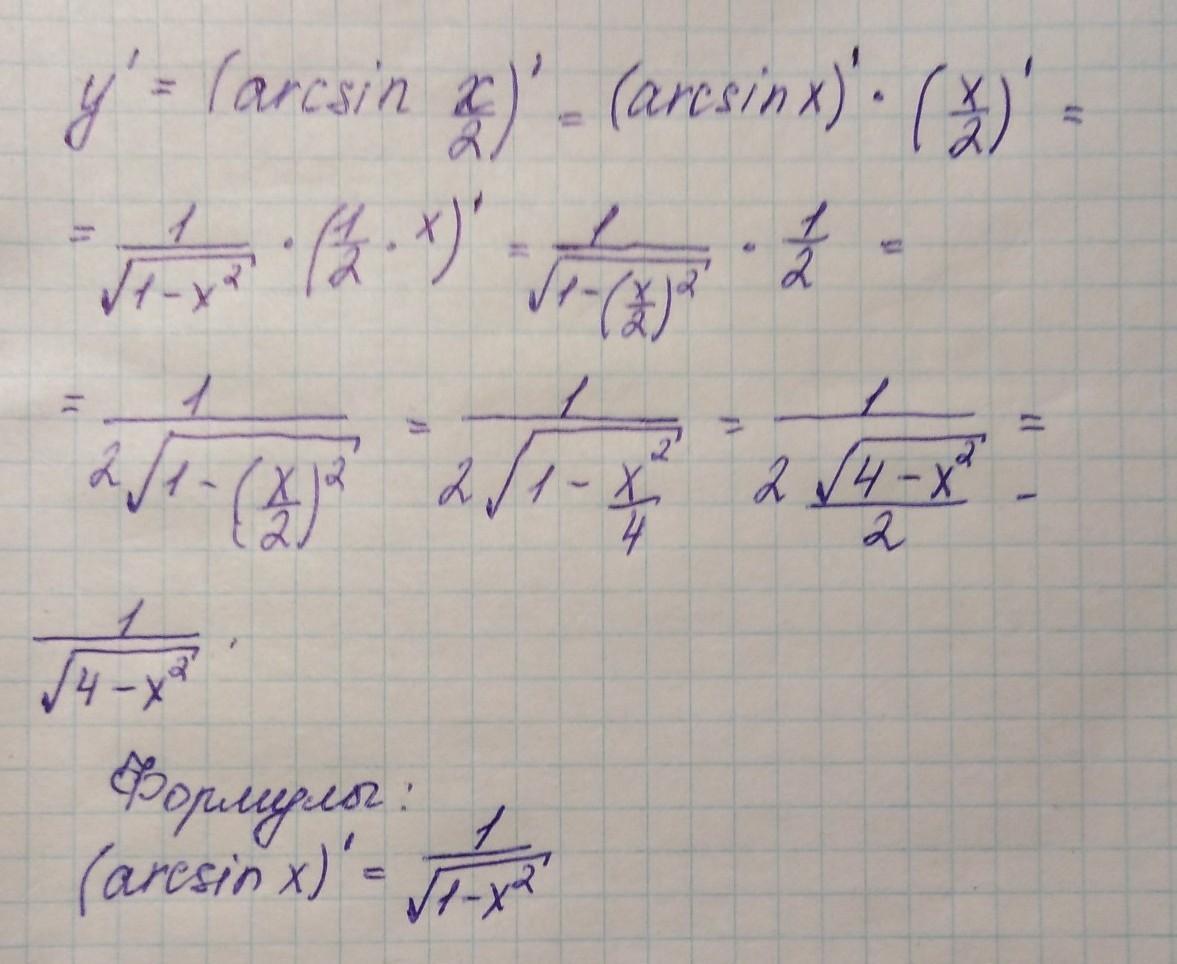 y' = (arcsin x/2)' = (arcsin x)' · (x/2)' =
= 1/√(1-x²) · (1/2 · x)' = 1/√(1-(x/2)²) · 1/2 =
= 1/(2√(1-(x/2)²)) = 1/(2√(1-x²/4)) = 1/(2 √(4-x²)/2) =
1/√(4-x²) .
Формулы:
(arcsin x)' = 1/√(1-x²)